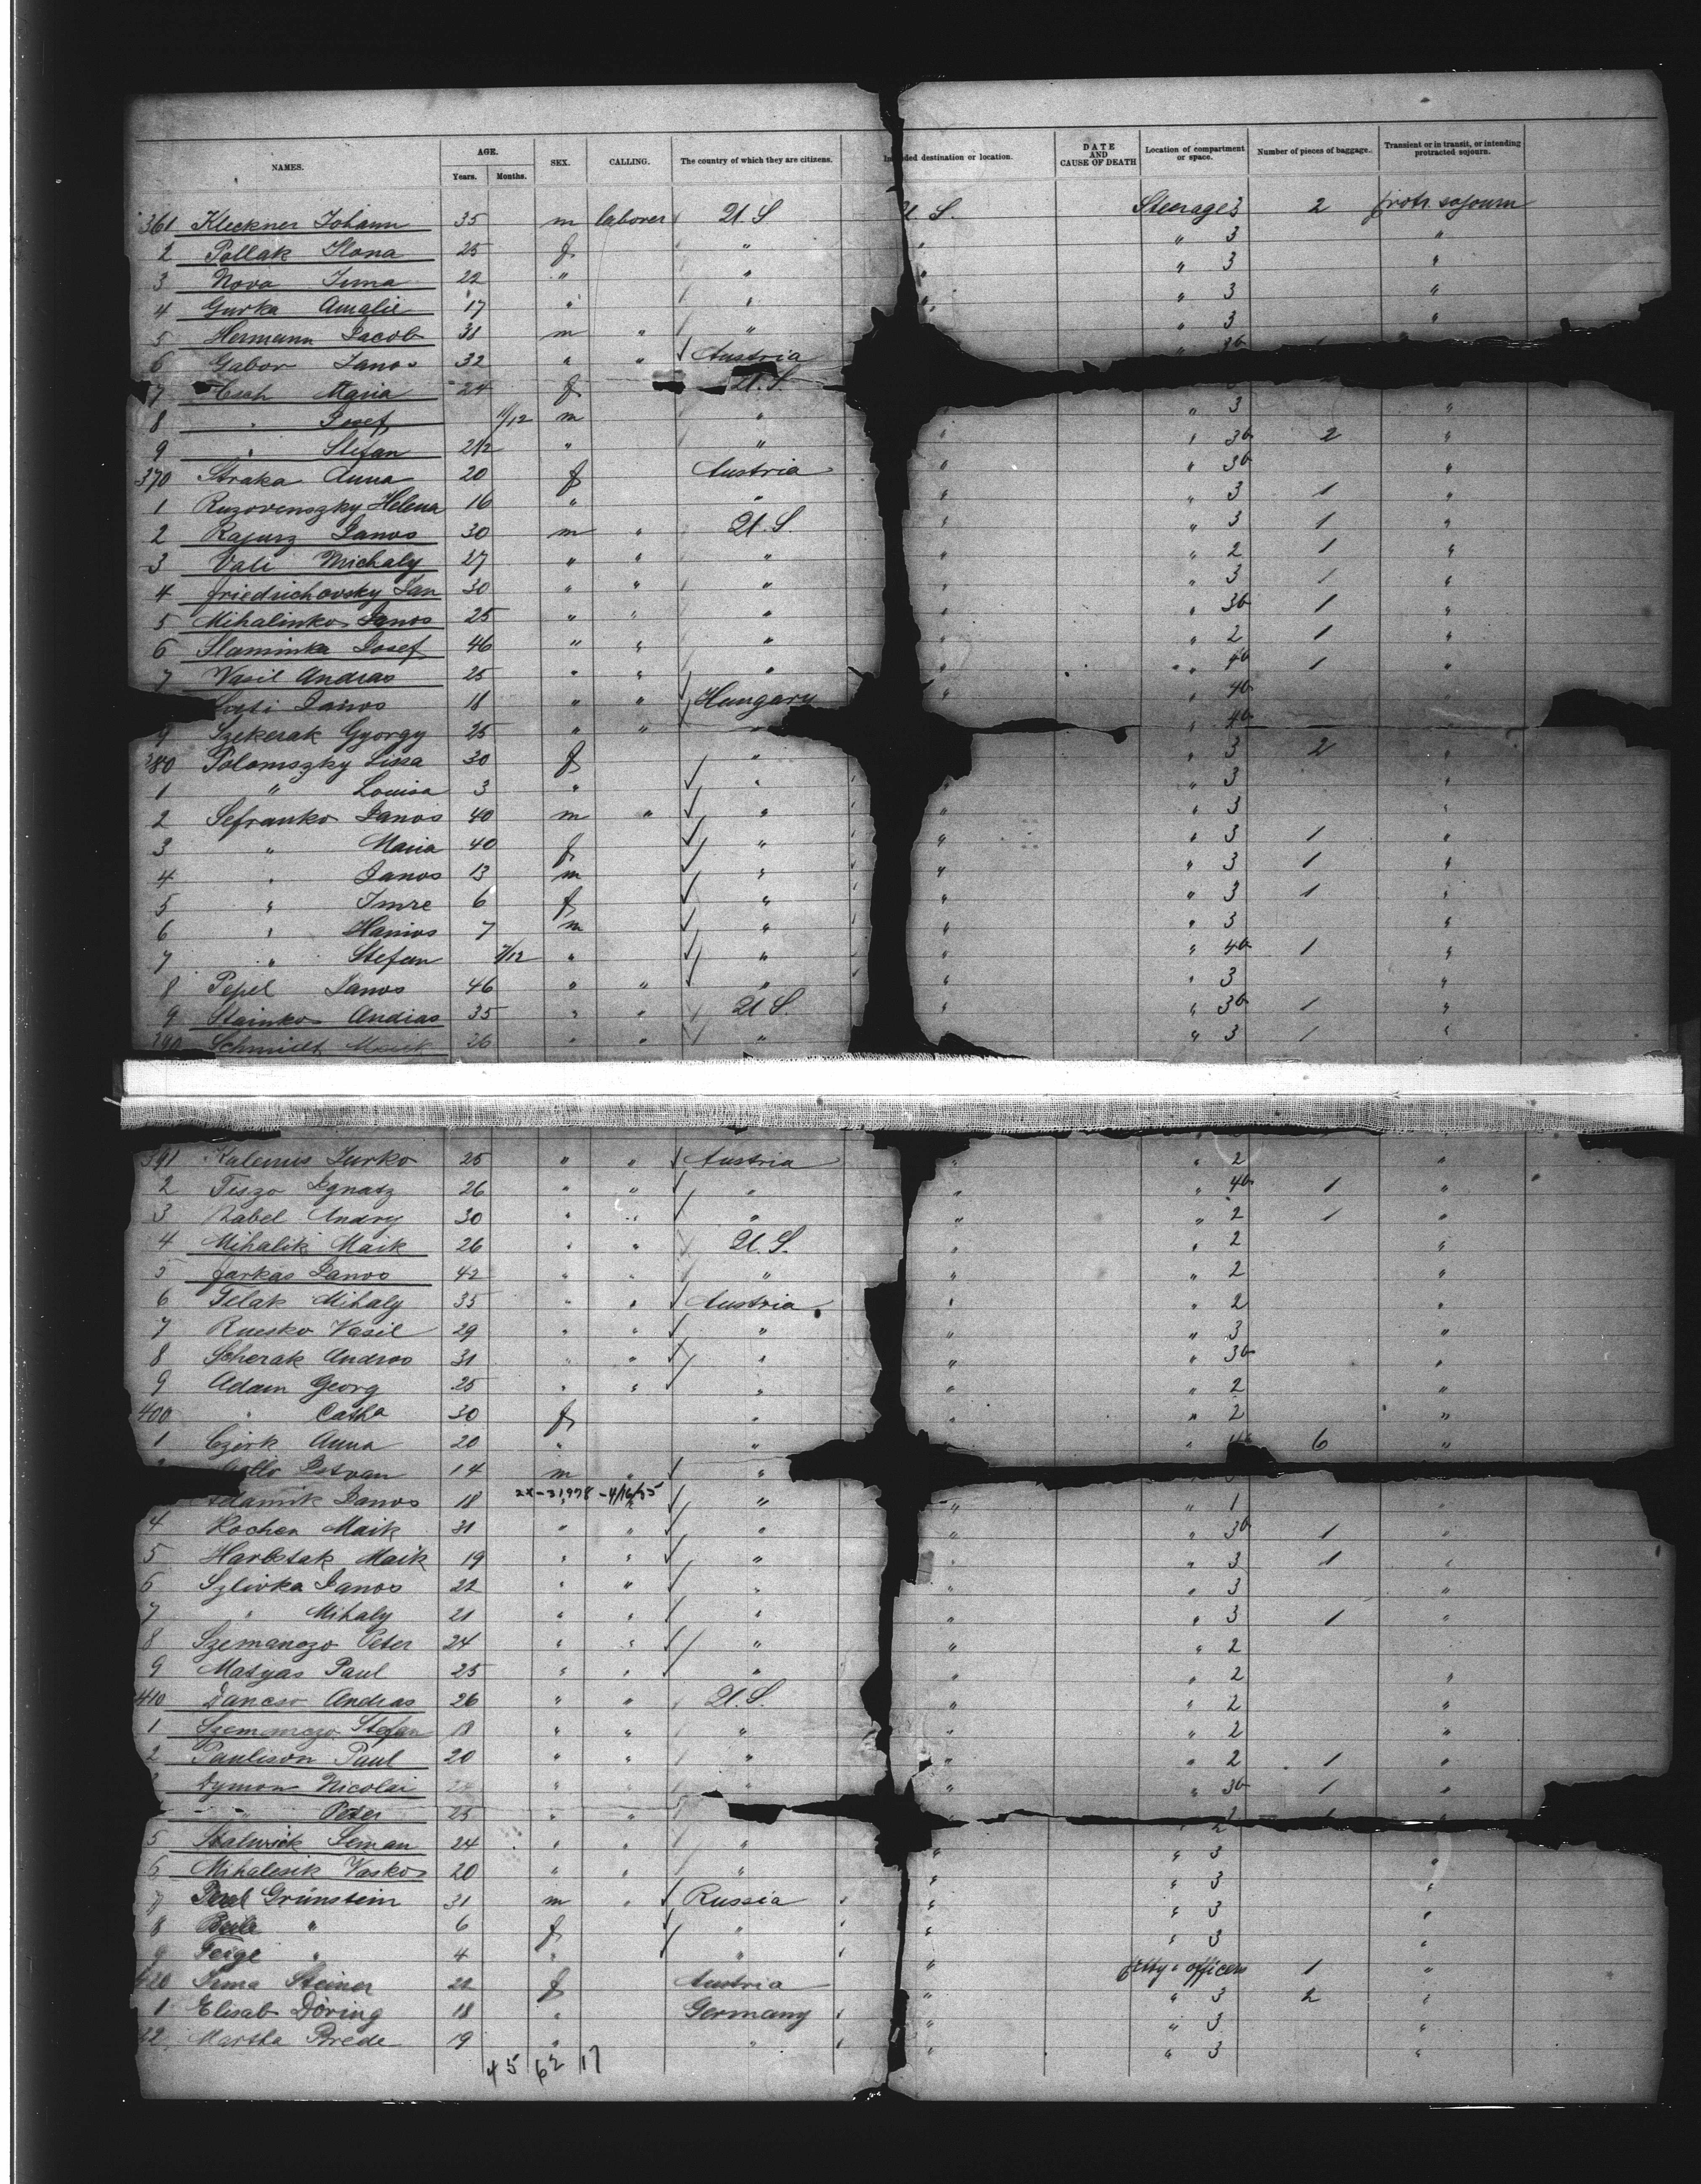 NAMES. AGE. Years. Months. SEX. CALLING. The country of which they are citizens. Intended destination or location. DATE AND CAUSE OF DEATH Location of compartment or space. Number of pieces of baggage. Transient or in transit, or intending protracted sojourn.
361 Kleckner Johann 35 m laborer U.S U S. Steerage 3 2 protr. sojourn
2 Pollak Ilona 25 f " " " 3 "
3 Nova Irma 22 " " " " 3 "
4 Gurka Amalie 17 " " " " 3 "
5 Hermann Jacob 38 m " " " 3 "
6 Gabor Janos 32 " " Austria
7 Maria 24 f U.S.
8 " Josef 11/12 m " " 3 "
9 " Stefan 2 1/2 " " " " 3b 2 "
370 Straka Anna 20 f Austria " " 3b "
1 Ruzovenszky Helena 16 " " " " 3 1 "
2 Rajusz Janos 30 m " U.S. " " 3 1 "
3 Vali Michaly 27 " " " " " 2 1 "
4 Friedrichovsky Jan 30 " " " " " 3 1 "
5 Mihalinko Janos 25 " " " " " 3b 1 "
6 Slaminka Josef 46 " " " " " 2 1 "
7 Vasil Andras 25 " " " " 4b 1 "
Janos 18 " " Hungary " " 4b
9 Szekerak György 25 " " " " 4b
380 Polomszky Lissa 30 f " " 3 2 "
1 " Louisa 3 " " " " 3 "
2 Sefranko Janos 40 m " " " " 3 "
3 " Maria 40 f " " " 3 1 "
4 " Janos 13 m " " " 3 1 "
5 " Imre 6 f " " " 3 1 "
6 " 7 m " " " 3 "
7 " Stefan 7/12 " " " " 4b 1 "
8 Pepel Janos 46 " " " " 3 "
9 Stainko Andras 35 " " U.S. " " 3b 1 "
390 Schmidt 26 " " " " 3 1 "
391 Kalemis Jurko 25 " " Austria " " 2 "
2 Tiszo Ignatz 26 " " " " " 4b 1 "
3 Andry 30 " " " " " 2 1 "
4 Mihalik Maik 26 " " U.S. " " 2 "
5 Farkas Janos 42 " " " " " 2 "
6 Mihaly 35 " " Austria " " 2 "
7 Vasil 29 " " " " " 3 "
8 Scherak Andras 31 " " " " " 3b "
9 Adam Georg 25 " " " " " 2 "
400 " Catha 30 f " " " 2 "
1 Anna 20 " " " 6 "
Istvan 14 m " "
Adamik Janos 18 2x-31978-4/16/55 " " " 1
4 Kochen Maik 31 " " " " " 3b 1 "
5 Harbstak Maik 19 " " " " 3 1 "
6 Szlivka Janos 22 " " " " " 3 "
7 " Mihaly 21 " " " " " 3 1 "
8 Szemanczo Peter 24 " " " " " 2
9 Matyas Paul 25 " " " " " 2 "
410 Dancso Andras 26 " " U.S. " " 2 "
1 Szemanczo Stefan 19 " " " " " 2 "
2 Paulison Paul 20 " " " " " 2 1 "
Dymon Nicolai 24 " " " " " 3b 1 "
" Peter 25 " " 2
5 Seman 24 " " " " " 3 "
6 Mihalesik Vasko 20 " " " " " 3 "
7 Grünstein 31 m " Russia " " 3 "
8 Beile " 6 f " " " 3 "
9 Feige " 4 " " "
420 Irma Steiner 22 f Austria " petty officers 1 "
1 Elisab Döring 18 " Germany " " 3 2 "
22 Martha Brede 19 " " " " 3 "
" 3 "
45 62 17